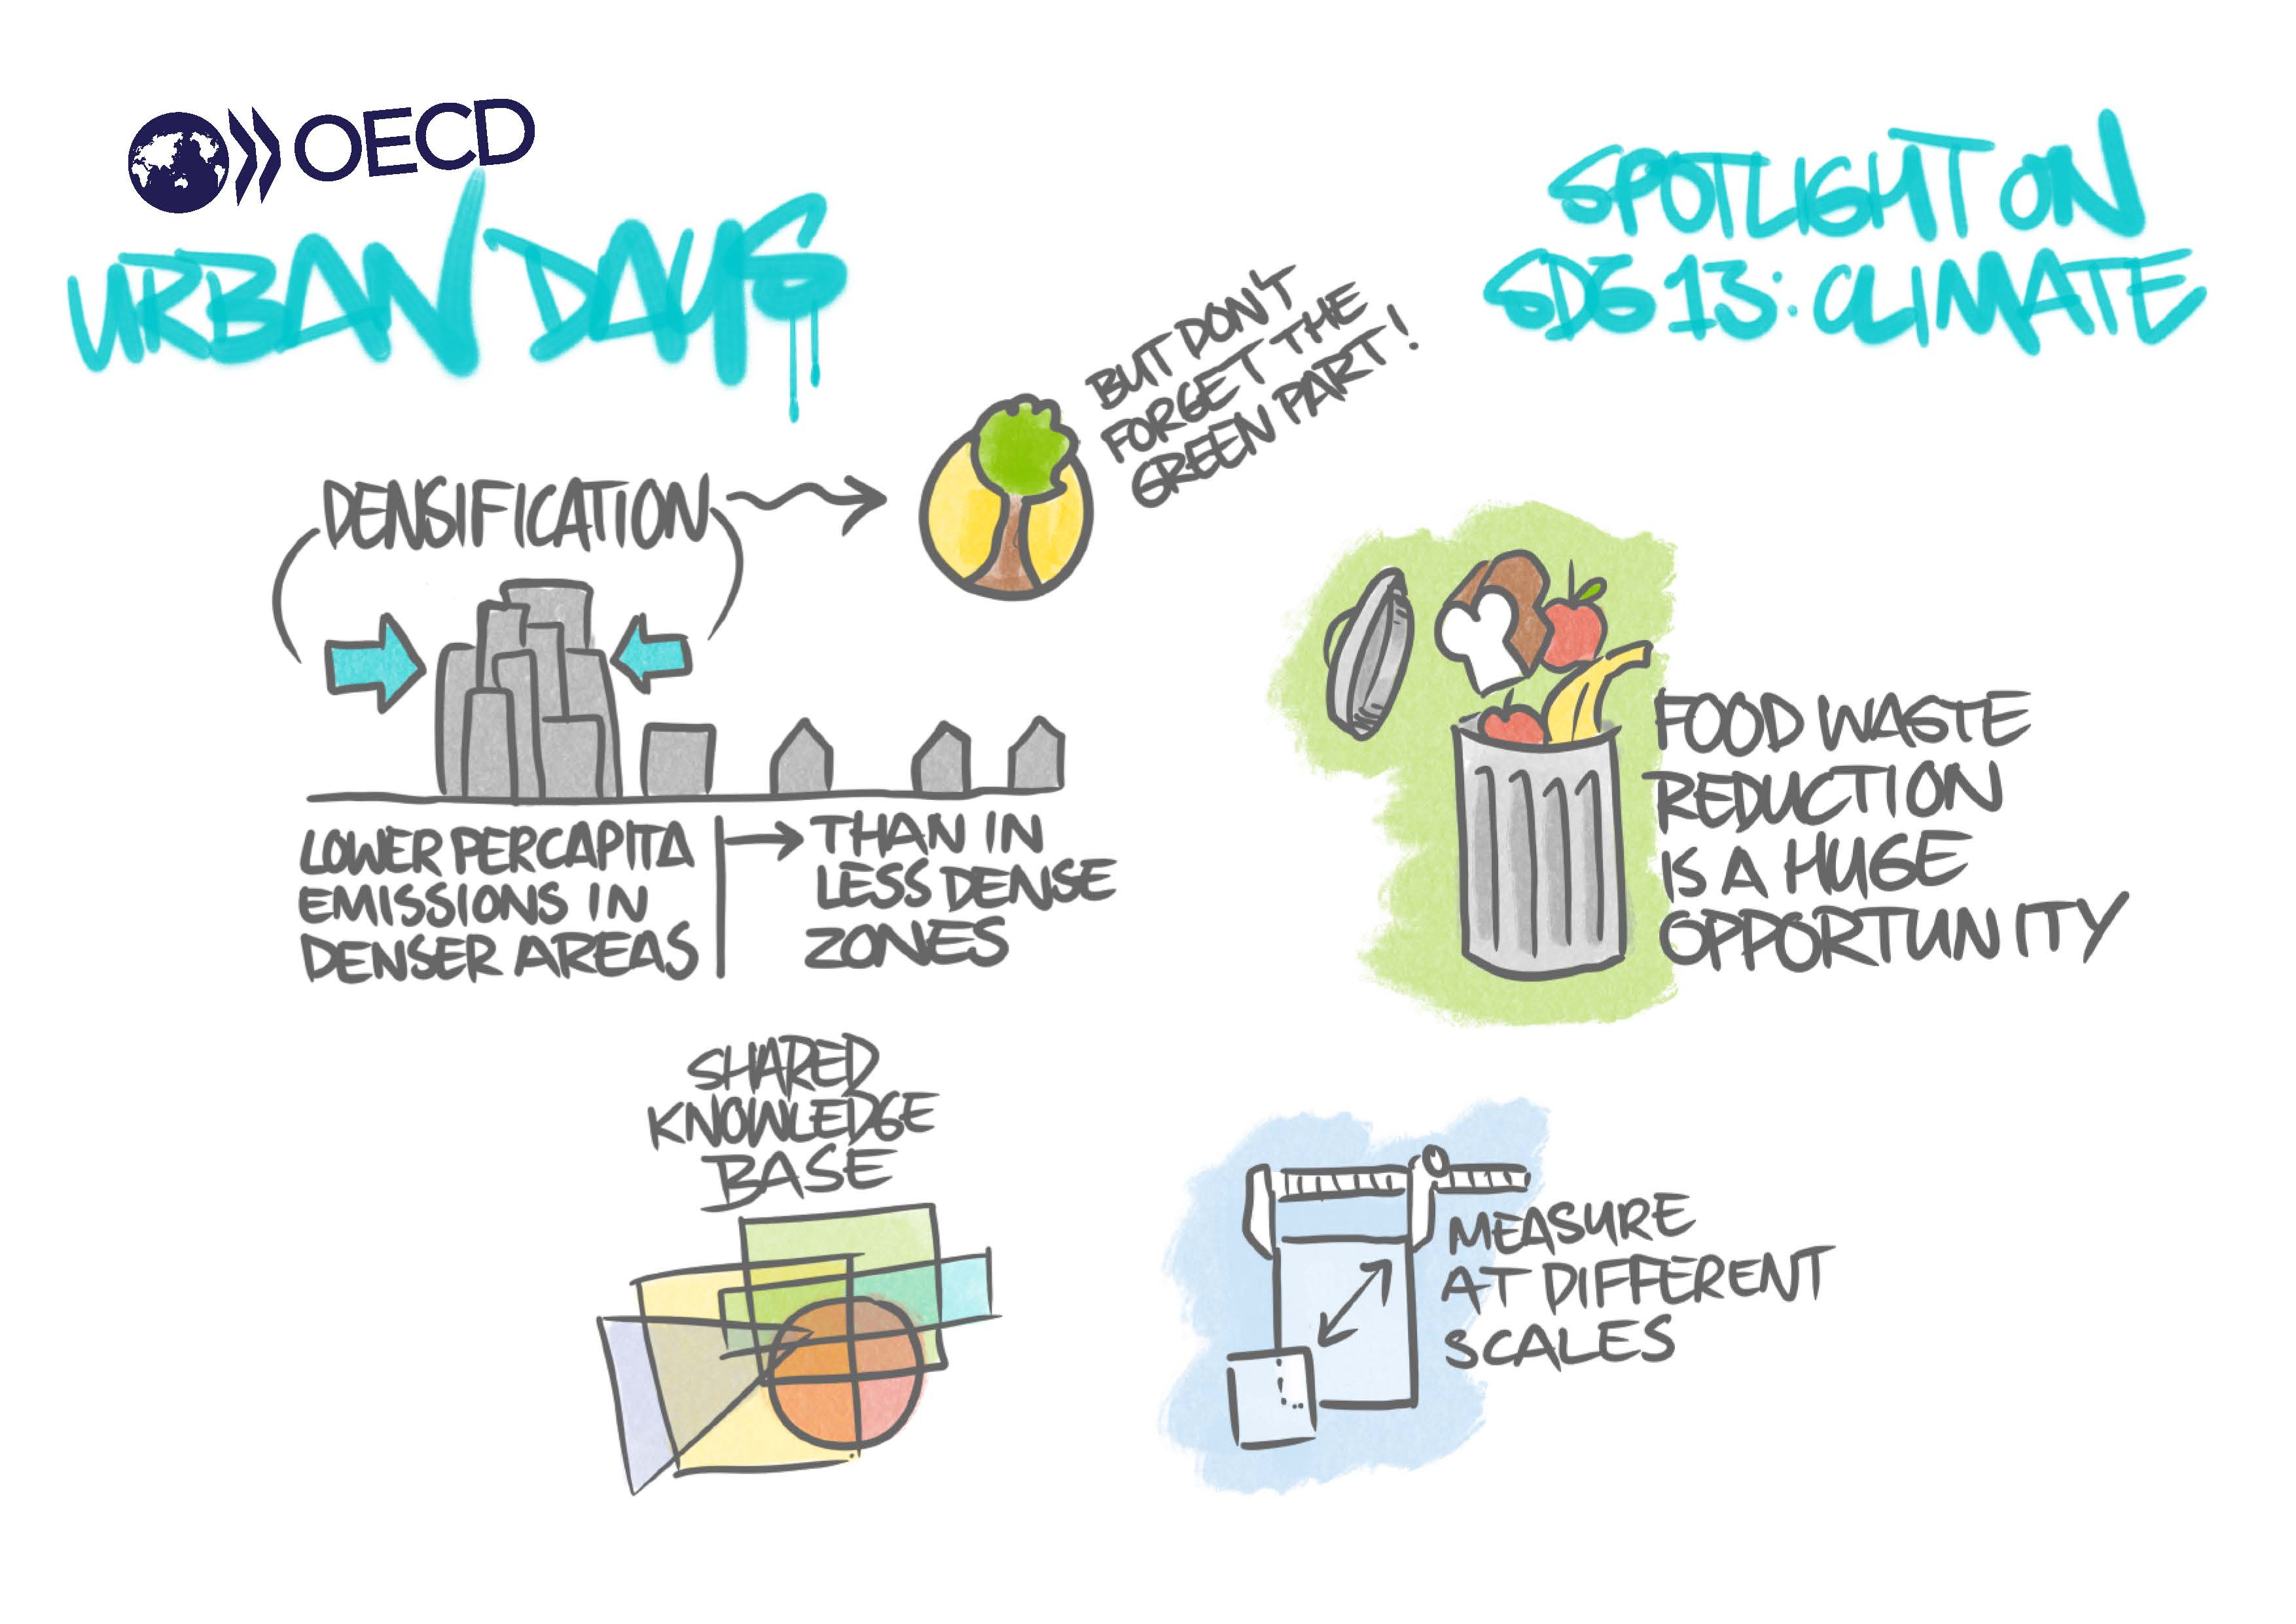 OECD
URBAN DAYS
SPOTLIGHT ON
SDG 13: CLIMATE
BUT DON'T
FORGET THE
GREEN PART!
DENSIFICATION
LOWER PER CAPITA
EMISSIONS IN
DENSER AREAS
THAN IN
LESS DENSE
ZONES
FOOD WASTE
REDUCTION
IS A HUGE
OPPORTUNITY
SHARED
KNOWLEDGE
BASE
MEASURE
AT DIFFERENT
SCALES